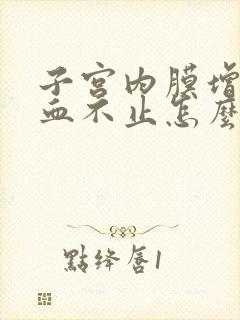 子宫内膜增
血不止怎麼
點绛唇1